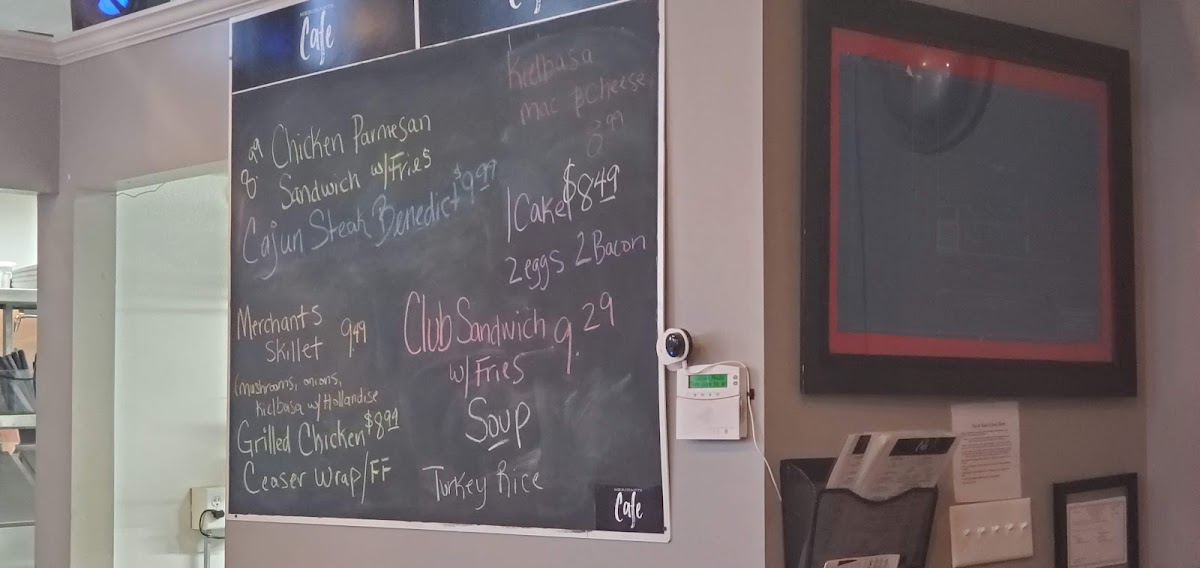 Cafe
Chicken Parmesan
8.99
Sandwich w/Fries
Cajun Steak Benedict $9.99
Merchants
Skillet 9.49
(mushrooms, onions,
Kielbasa w/Hollandise
Grilled Chicken $8.99
Ceaser Wrap/FF
Kielbasa
mac & Cheese
8.99
1 Cake $8.49
2 eggs 2 Bacon
Club Sandwich 9.29
w/Fries
Soup
Turkey Rice
Cafe